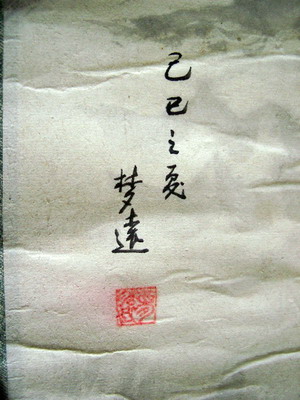 己巳之夏
梦远